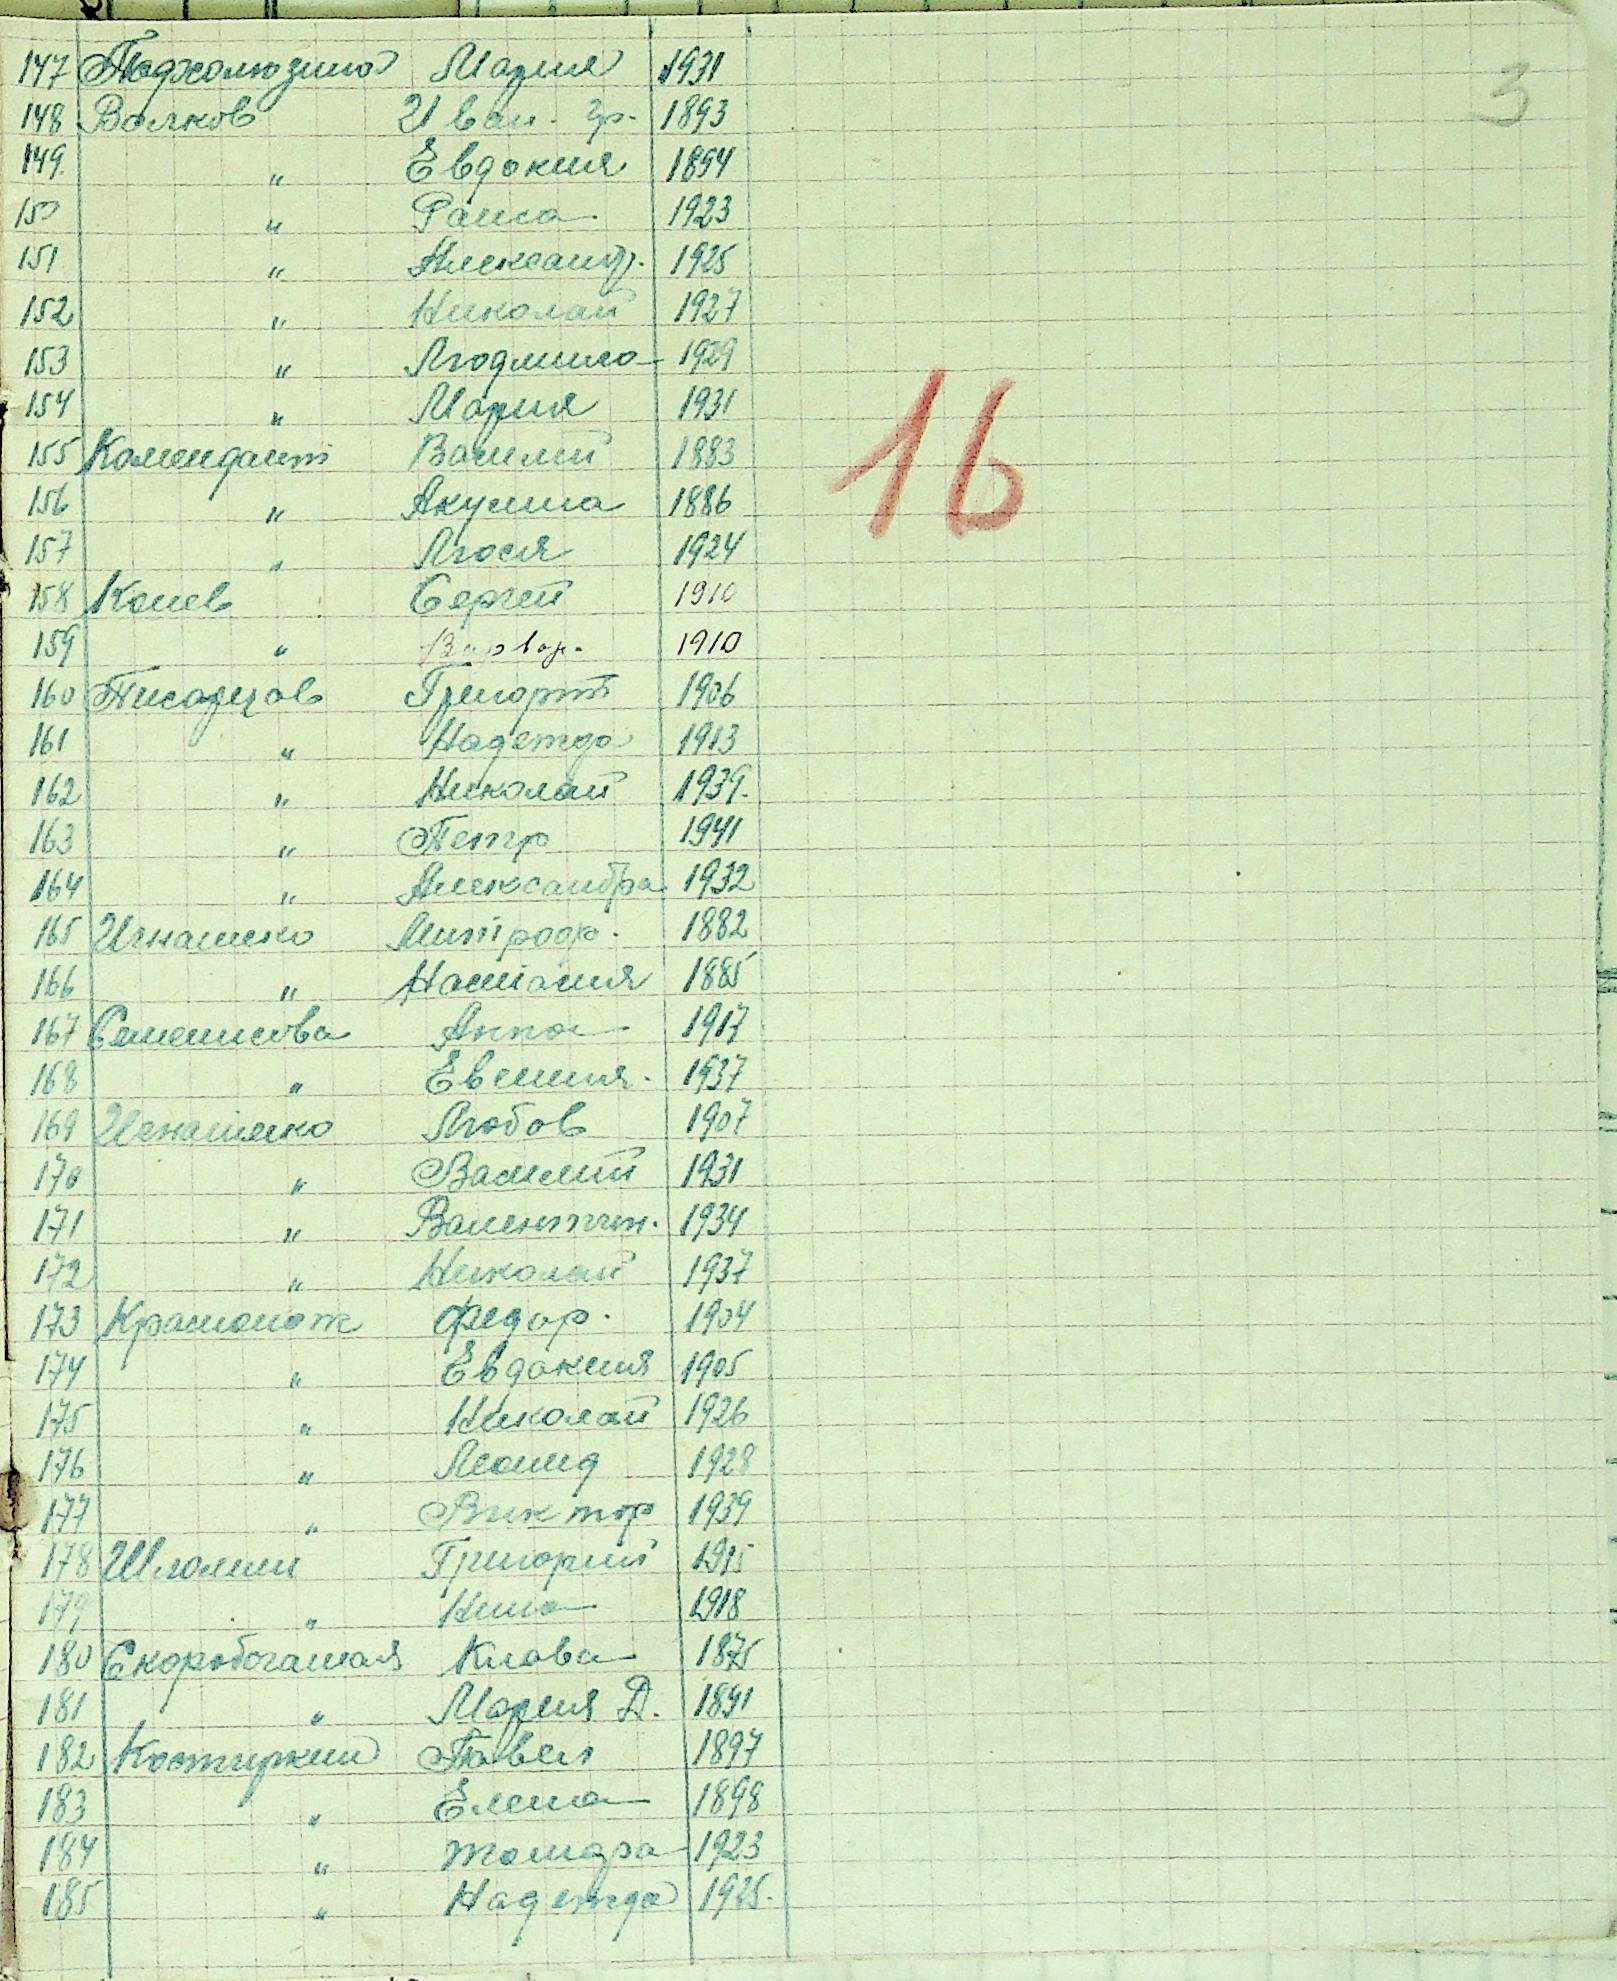 147 Подхолюзина Мария 1931
3
148 Волков Иван. Гр. 1893
149. " Евдокия 1894
150 " Раиса 1923
151 " Александр. 1925
152 " Николай 1927
153 " Людмила 1929
154 " Мария 1931
155 Комендант Василий 1883
16
156 " Акулина 1886
157 " Люся 1924
158 Конев Сергей 1910
159 " Варвар. 1910
160 Писарцов Григорий 1906
161 " Надежда 1913
162 " Николай 1939.
163 " Петр 1941
164 " Александра 1932
165 Игнатенко Митроф. 1882
166 " Настасия 1885
167 Семенисова Анна 1917
168 " Евгения. 1937
169 Игнатенко Любов 1907
170 " Василий 1931
171 " Валентин. 1934
172 " Николай 1937
173 Красионож Федор. 1904
174 " Евдокия 1905
175 " Николай 1926
176 " Леонид 1928
177 " Виктор 1939
178 Шломин Григорий 1915
179 " Нина 1918
180 Скоробогатая Клава 1875
181 " Мария Д. 1891
182 Костиркин Павел 1897
183 " Елена 1898
184 " Тамара 1923
185 " Надежда 1925.